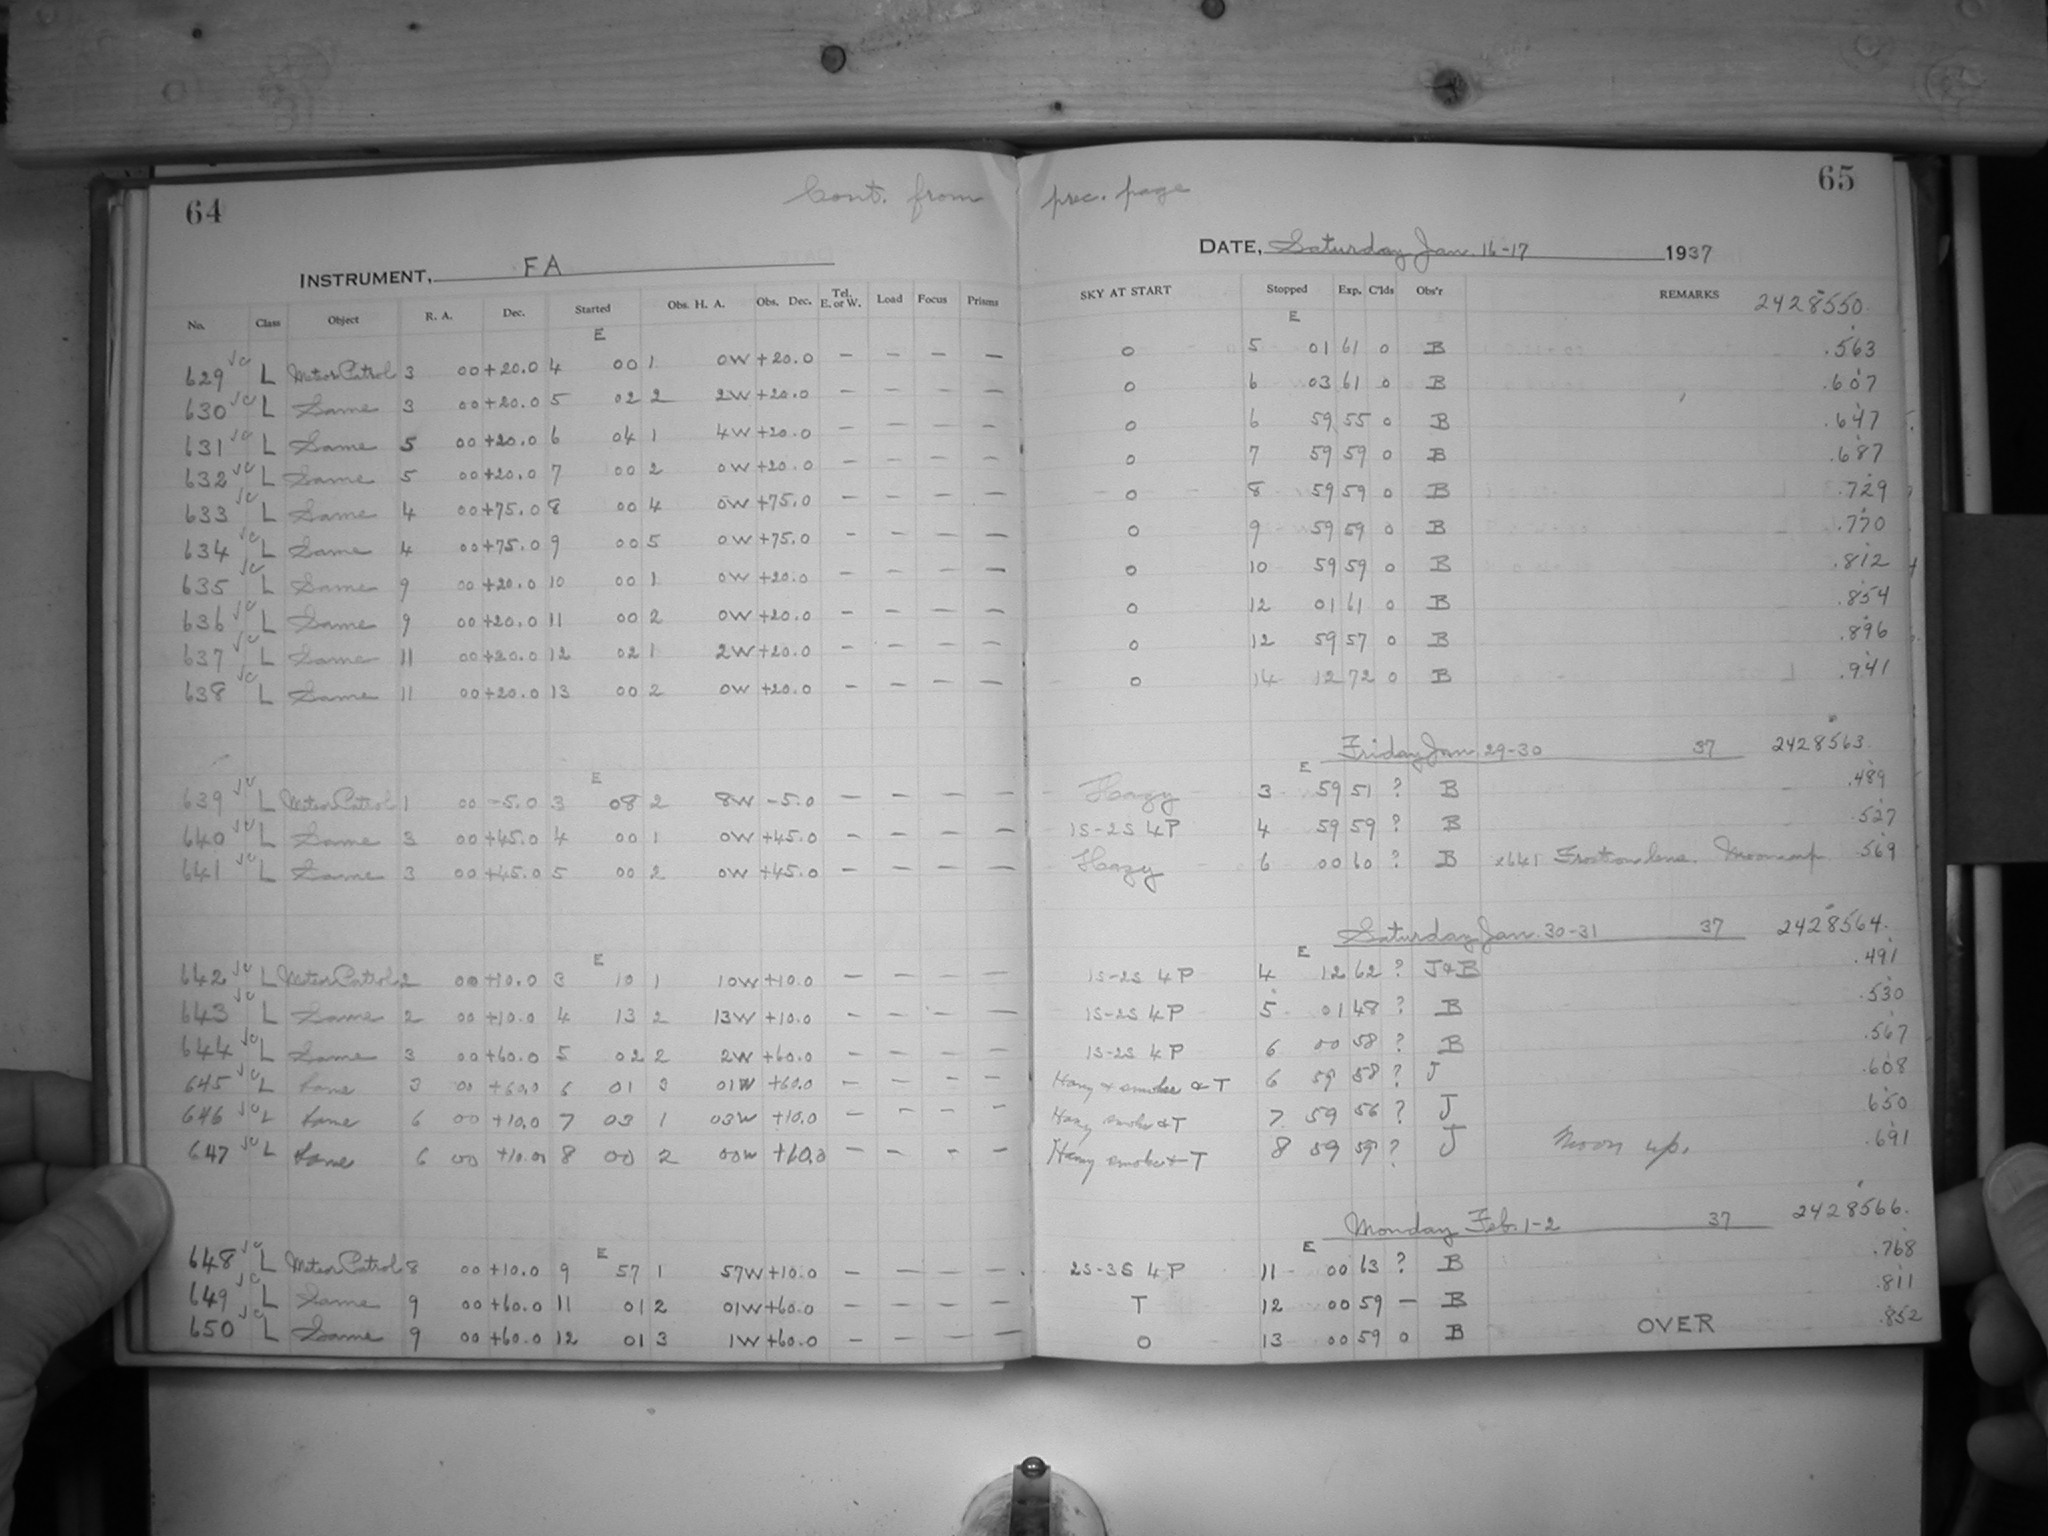 64 Cont. from prec. page 65
INSTRUMENT, FA DATE, Saturday Jan. 16-17 1937
No. Class Object R. A. Dec. Started Obs. H. A. Obs. Dec. Tel. E. or W. Load Focus Prisms SKY AT START Stopped Exp. C'lds Obs'r REMARKS 2428550
E E
629 L Meteor Patrol 3 00 +20.0 4 00 1 0W +20.0 — — — — 0 5 01 61 0 B .563
630 L Same 3 00 +20.0 5 02 2 2W +20.0 — — — — 0 6 03 61 0 B .607
631 L Same 5 00 +20.0 6 04 1 4W +20.0 — — — — 0 6 59 55 0 B .647
632 L Same 5 00 +20.0 7 00 2 0W +20.0 — — — — 0 7 59 59 0 B .687
633 L Same 4 00 +75.0 8 00 4 0W +75.0 — — — — 0 8 59 59 0 B .729
634 L Same 4 00 +75.0 9 00 5 0W +75.0 — — — — 0 9 59 59 0 B .770
635 L Same 9 00 +20.0 10 00 1 0W +20.0 — — — — 0 10 59 59 0 B .812
636 L Same 9 00 +20.0 11 00 2 0W +20.0 — — — — 0 12 01 61 0 B .854
637 L Same 11 00 +20.0 12 02 1 2W +20.0 — — — — 0 12 59 57 0 B .896
638 L Same 11 00 +20.0 13 00 2 0W +20.0 — — — — 0 14 12 72 0 B .941
Friday Jan. 29-30 37 2428563
E E
639 L Meteor Patrol 1 00 -5.0 3 08 2 8W -5.0 — — — — Hazy 3 59 51 ? B .489
640 L Same 3 00 +45.0 4 00 1 0W +45.0 — — — — 1S-2S 4P 4 59 59 ? B .527
641 L Same 3 00 +45.0 5 00 2 0W +45.0 — — — — Hazy 6 00 60 ? B x641 Frost on lens. Moon up .569
Saturday Jan. 30-31 37 2428564.
E E
642 L Meteor Patrol 2 00 +10.0 3 10 1 10W +10.0 — — — — 1S-2S 4P 4 12 62 ? J&B .491
643 L Same 2 00 +10.0 4 13 2 13W +10.0 — — — — 1S-2S 4P 5 01 48 ? B .530
644 L Same 3 00 +60.0 5 02 2 2W +60.0 — — — — 1S-2S 4P 6 00 58 ? B .567
645 L Same 3 00 +60.0 6 01 3 01W +60.0 — — — — Hazy & smoke & T 6 59 58 ? J .608
646 L Same 6 00 +10.0 7 03 1 03W +10.0 — — — — Hazy smoke & T 7 59 56 ? J .650
647 L Same 6 00 +10.0 8 00 2 00W +10.0 — — — — Hazy smoke & T 8 59 59 ? J Moon up. .691
Monday Feb. 1-2 37 2428566.
E E
648 L Meteor Patrol 8 00 +10.0 9 57 1 57W +10.0 — — — — 2S-3S 4P 11 00 63 ? B .768
649 L Same 9 00 +60.0 11 01 2 01W +60.0 — — — — T 12 00 59 — B .811
650 L Same 9 00 +60.0 12 01 3 1W +60.0 — — — — 0 13 00 59 0 B OVER .852